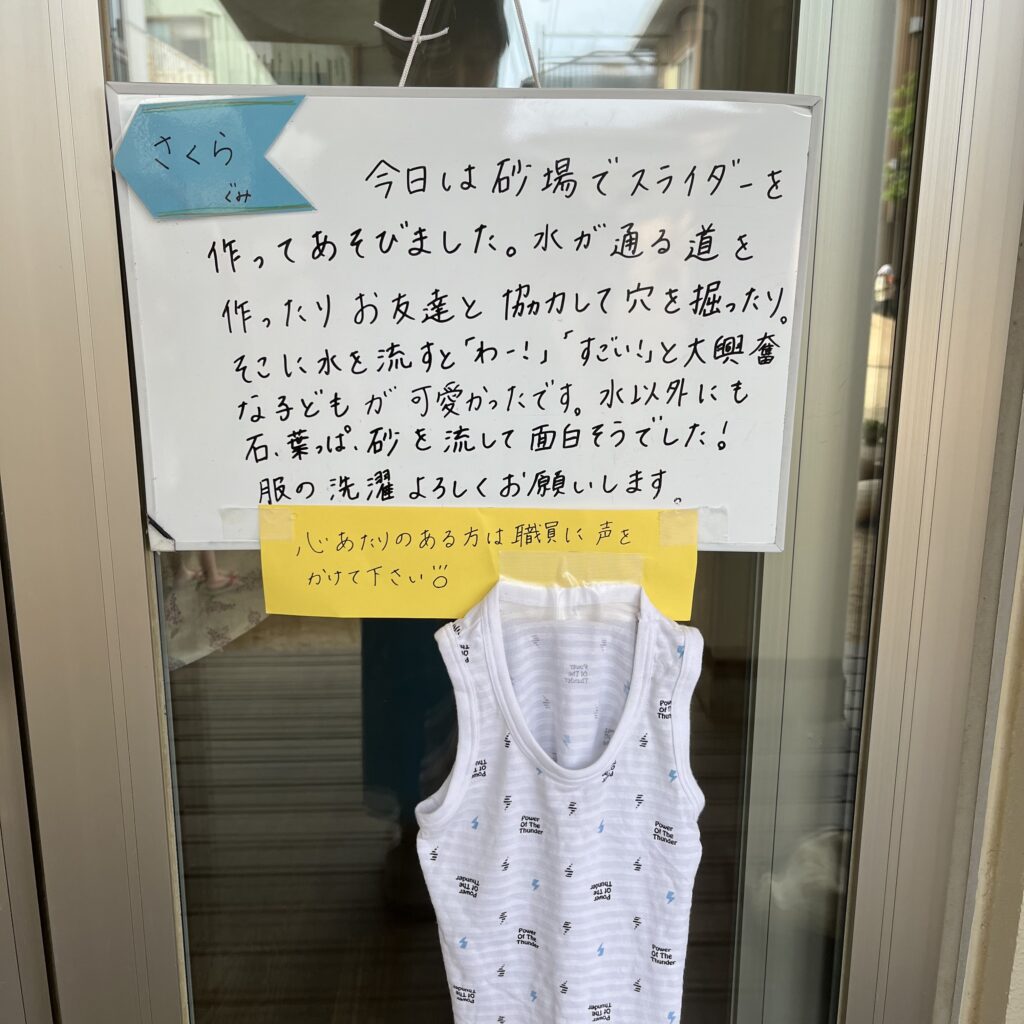 さくら
ぐみ
今日は砂場でスライダーを
作ってあそびました。水が通る道を
作ったりお友達と協力して穴を掘ったり。
そこに水を流すと「わー!」「すごい!」と大興奮
な子どもが可愛かったです。水以外にも
石、葉っぱ、砂を流して面白そうでした!
服の洗濯よろしくお願いします。
心あたりのある方は職員に声を
かけて下さい
Power
Of The
Thunder
Power
Of The
Thunder
Power
Of The
Thunder
Power
Of The
Thunder
Power
Of The
Thunder
Power
Of The
Thunder
Power
Of The
Thunder
Power
Of The
Thunder